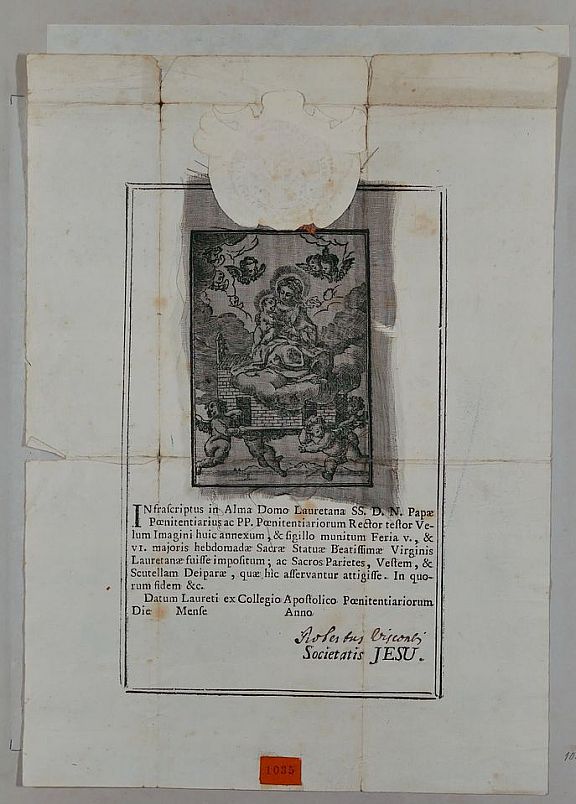 INfrascriptus in Alma Domo Lauretana SS. D. N. Papæ
Pœnitentiarius ac PP. Pœnitentiariorum Rector testor Ve-
lum Imagini huic annexum, & sigillo munitum Feria v., &
vi. majoris hebdomadæ Sacræ Statuæ Beatissimæ Virginis
Lauretanæ fuisse impositum; ac Sacros Parietes, Vestem, &
Scutellam Deiparæ, quæ hic asservantur attigisse. In quo-
rum fidem &c.
Datum Laureti ex Collegio Apostolico Pœnitentiariorum
Die Mense Anno
Robertus Visconti
Societatis JESU.
1035